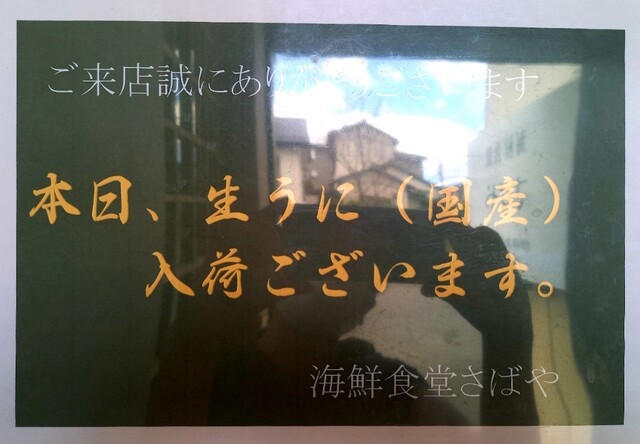 ご来店誠にありがとうございます
本日、生うに（国産）
入荷ございます。
海鮮食堂さばや